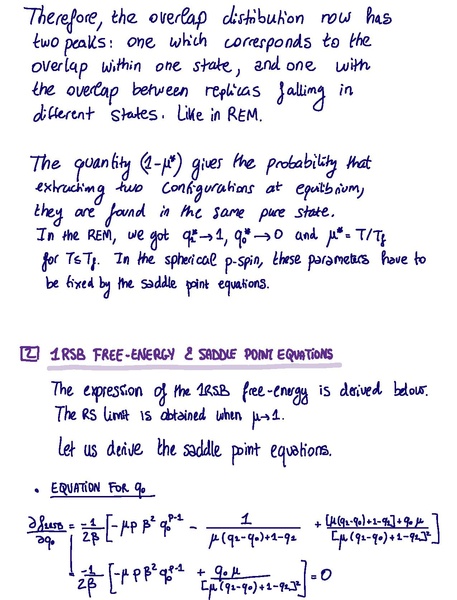 Therefore, the overlap distibution now has
two peaks: one which corresponds to the
overlap within one state, and one with
the overlap between replicas falling in
different states. Like in REM.
The quantity (1-μ*) gives the probability that
extracting two configurations at equilibrium,
they are found in the same pure state.
In the REM, we got q₁*→1, q₀*→0 and μ*= T/T_f
for T≤T_f. In the spherical p-spin, these parameters have to
be fixed by the saddle point equations.
2 1RSB FREE-ENERGY & SADDLE POINT EQUATIONS
The expression of the 1RSB free-energy is derived below.
The RS limit is obtained when μ→1.
Let us derive the saddle point equations.
• EQUATION FOR q₀
∂f_1RSB/∂q₀ = -1/2β [-μ p β² q₀^{p-1} - 1/(μ(q₁-q₀)+1-q₁) + ([μ(q₁-q₀)+1-q₁]+q₀ μ)/[μ(q₁-q₀)+1-q₁]²]
= -1/2β [-μ p β² q₀^{p-1} + q₀ μ/[μ(q₁-q₀)+1-q₁]²] = 0